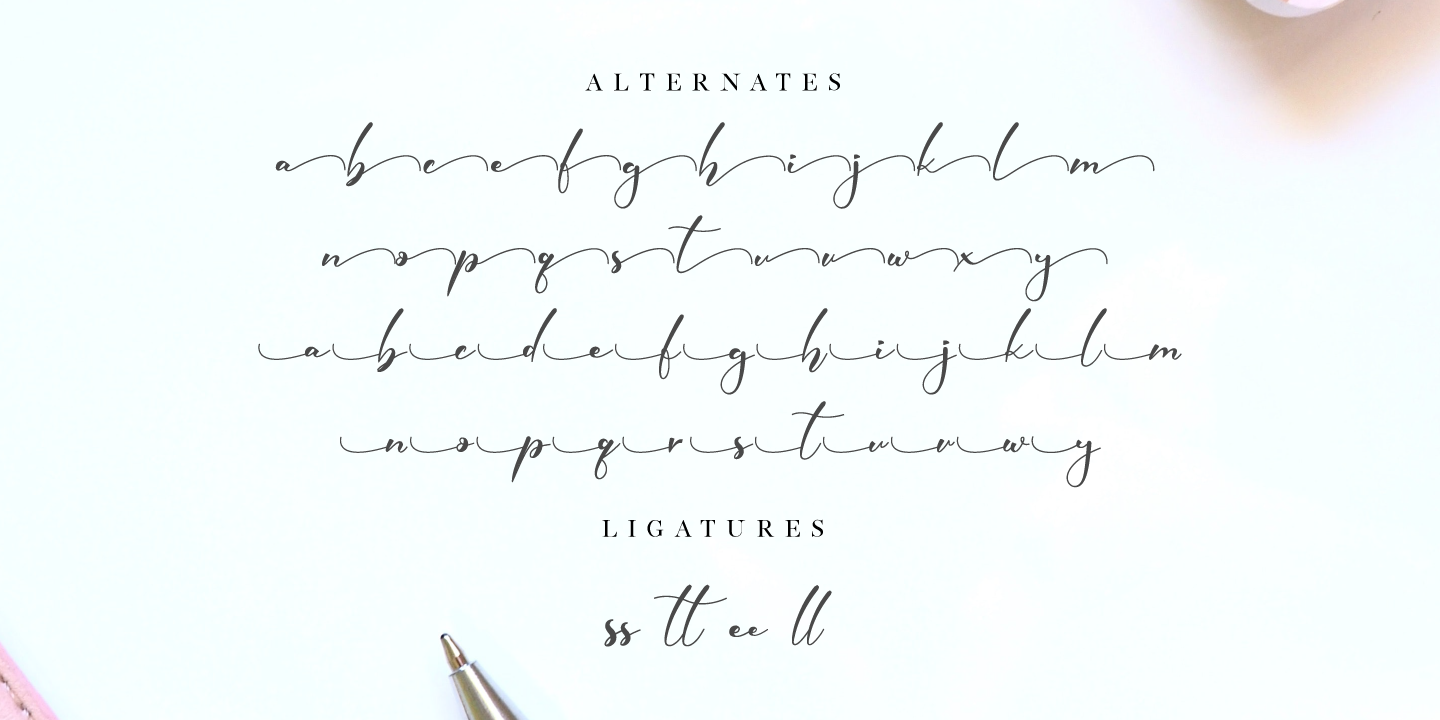 ALTERNATES
abcefghijklm
nopqstuvwxy
abcdefghijklm
nopqrstuvwy
LIGATURES
ss tt ee ll